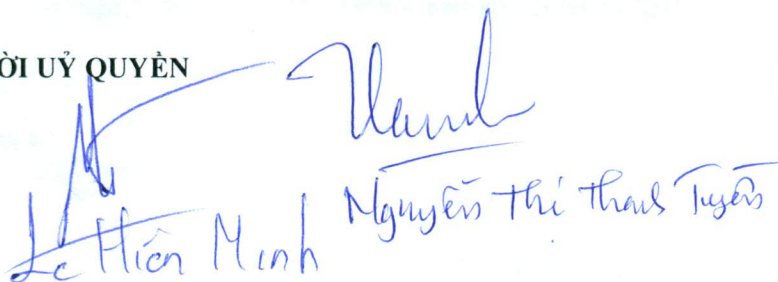 ỜI UỶ QUYỀN
Lê Hiền Minh
Nguyễn Thị Thanh Tuyền